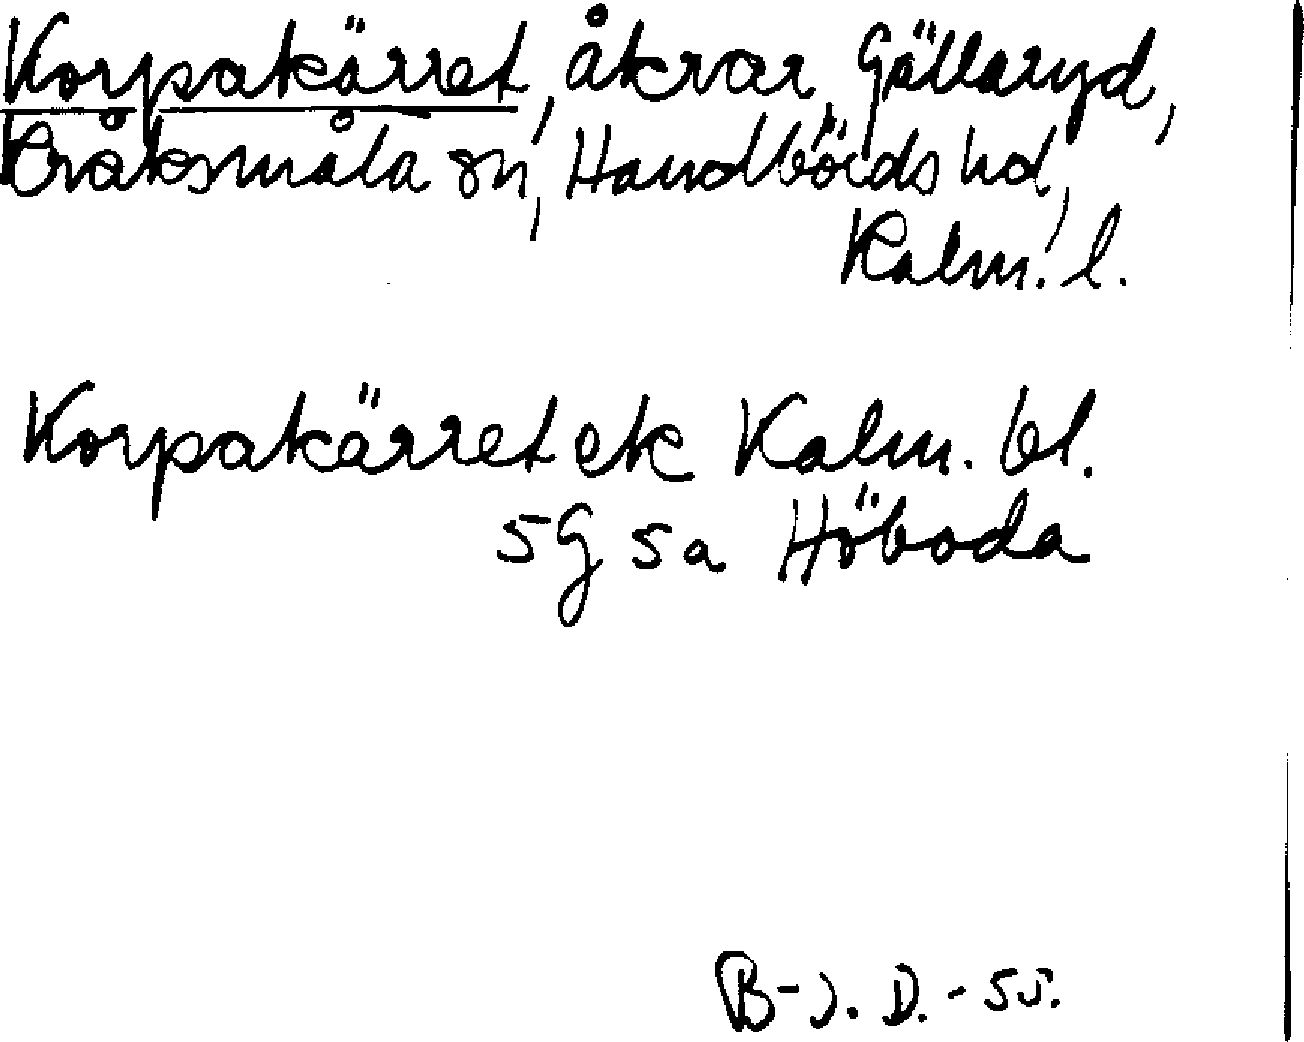 Korpakärret, åkrar, Gällaryd,
Kråksmåla sn, Handbörds hd,
Kalm. l.
Korpakärret ek Kalm. bl.
5G 5a Höboda
B-J. D. - 55.